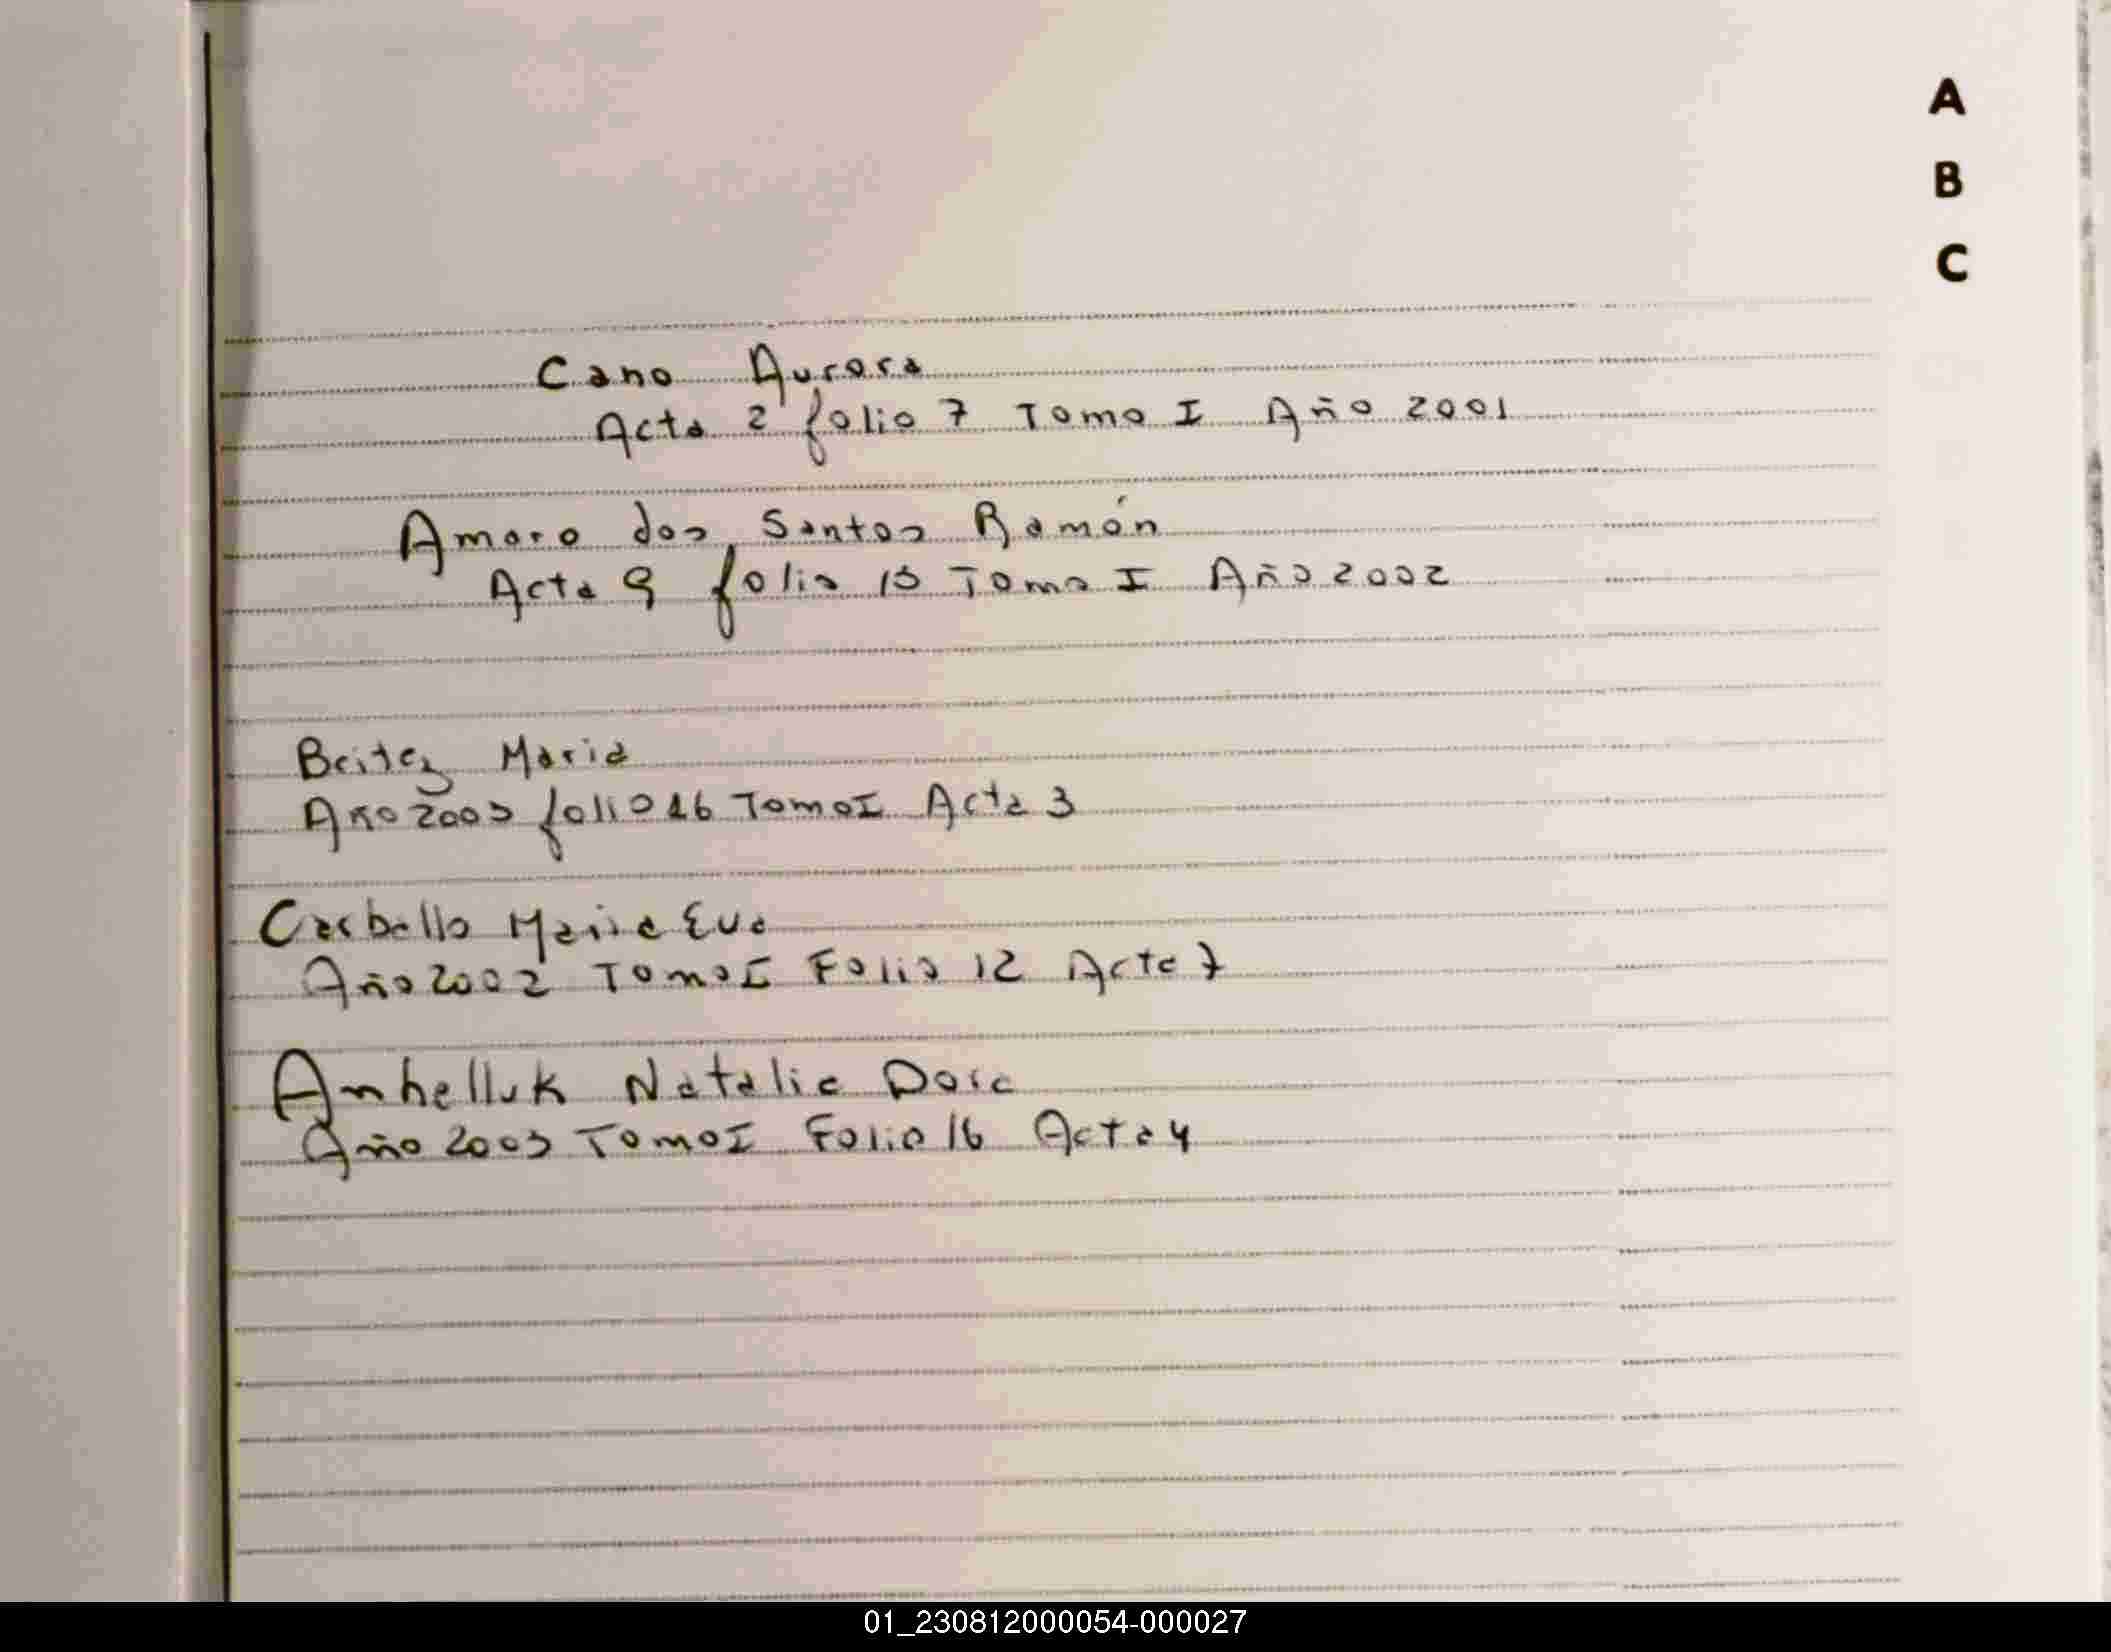 A
B
C
Cano Aurora
Acta 2 folio 7 Tomo I Año 2001
Amaro dos Santos Ramón
Acta 9 folio 15 Tomo I Año 2002
Beitez Maria
Año 2003 folio 16 Tomo I Acta 3
Carballo Maria Eva
Año 2002 Tomo I Folio 12 Acta 7
Anhelluk Natalia Dora
Año 2003 Tomo I Folio 16 Acta 4
01_230812000054-000027